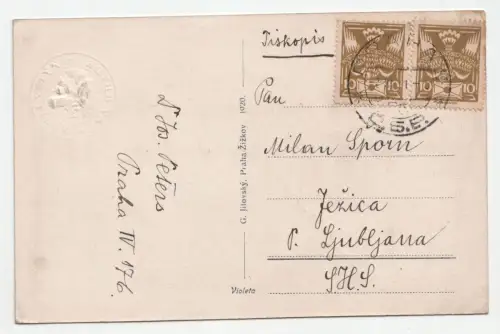 Tiskopis
10 10
Č.S.P.
Pan
Milan Sporn
Ježica
p. Ljubljana
S.H.S.
Dr Jos. Peters
Praha IV. 176.
G. Jilovský, Praha-Žižkov 1920.
Violeta